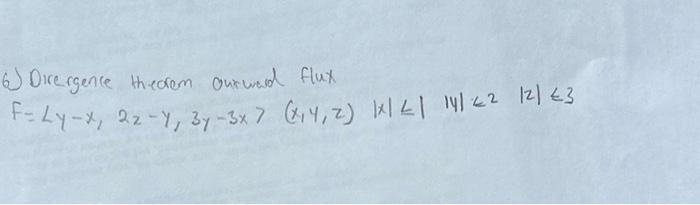 6) Divergence theorem outward flux
F = <y-x, 2z-y, 3y-3x> (x, y, z) |x| ≤ 1 |y| ≤ 2 |z| ≤ 3